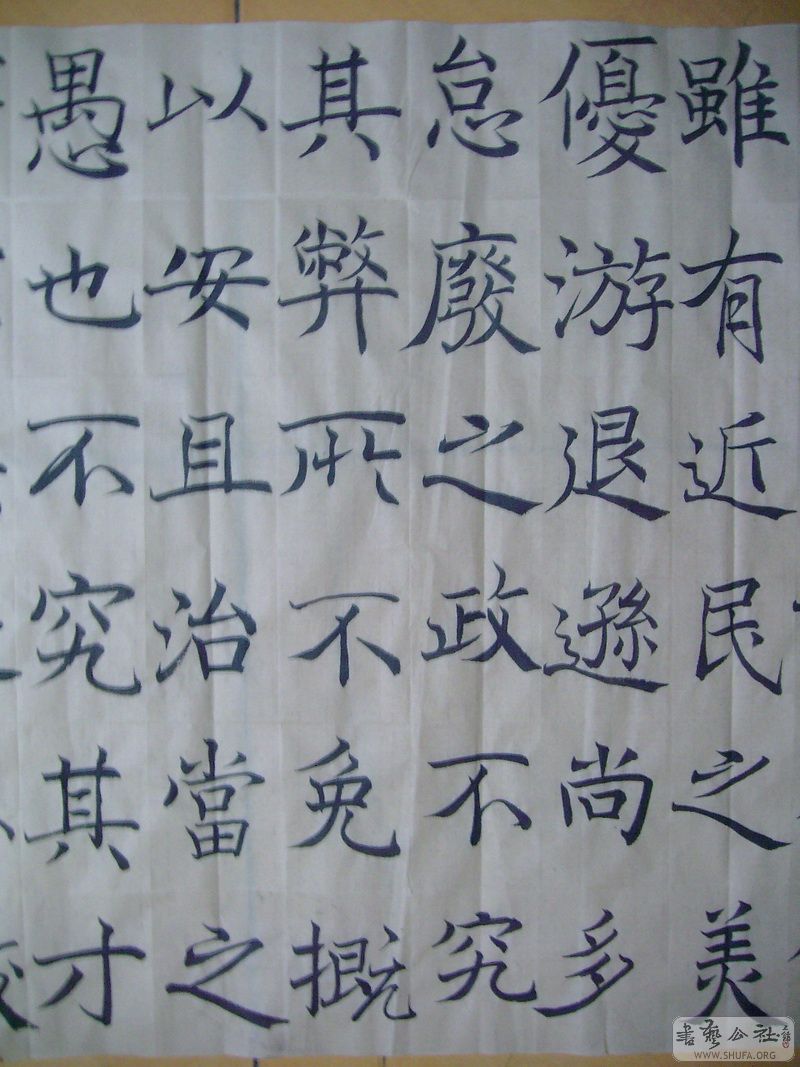 雖有近民之美
優游退遜尚多
怠廢之政不究
其弊所不免概
以安且治當之
愚也不究其才
書藝公社
WWW.SHUFA.ORG